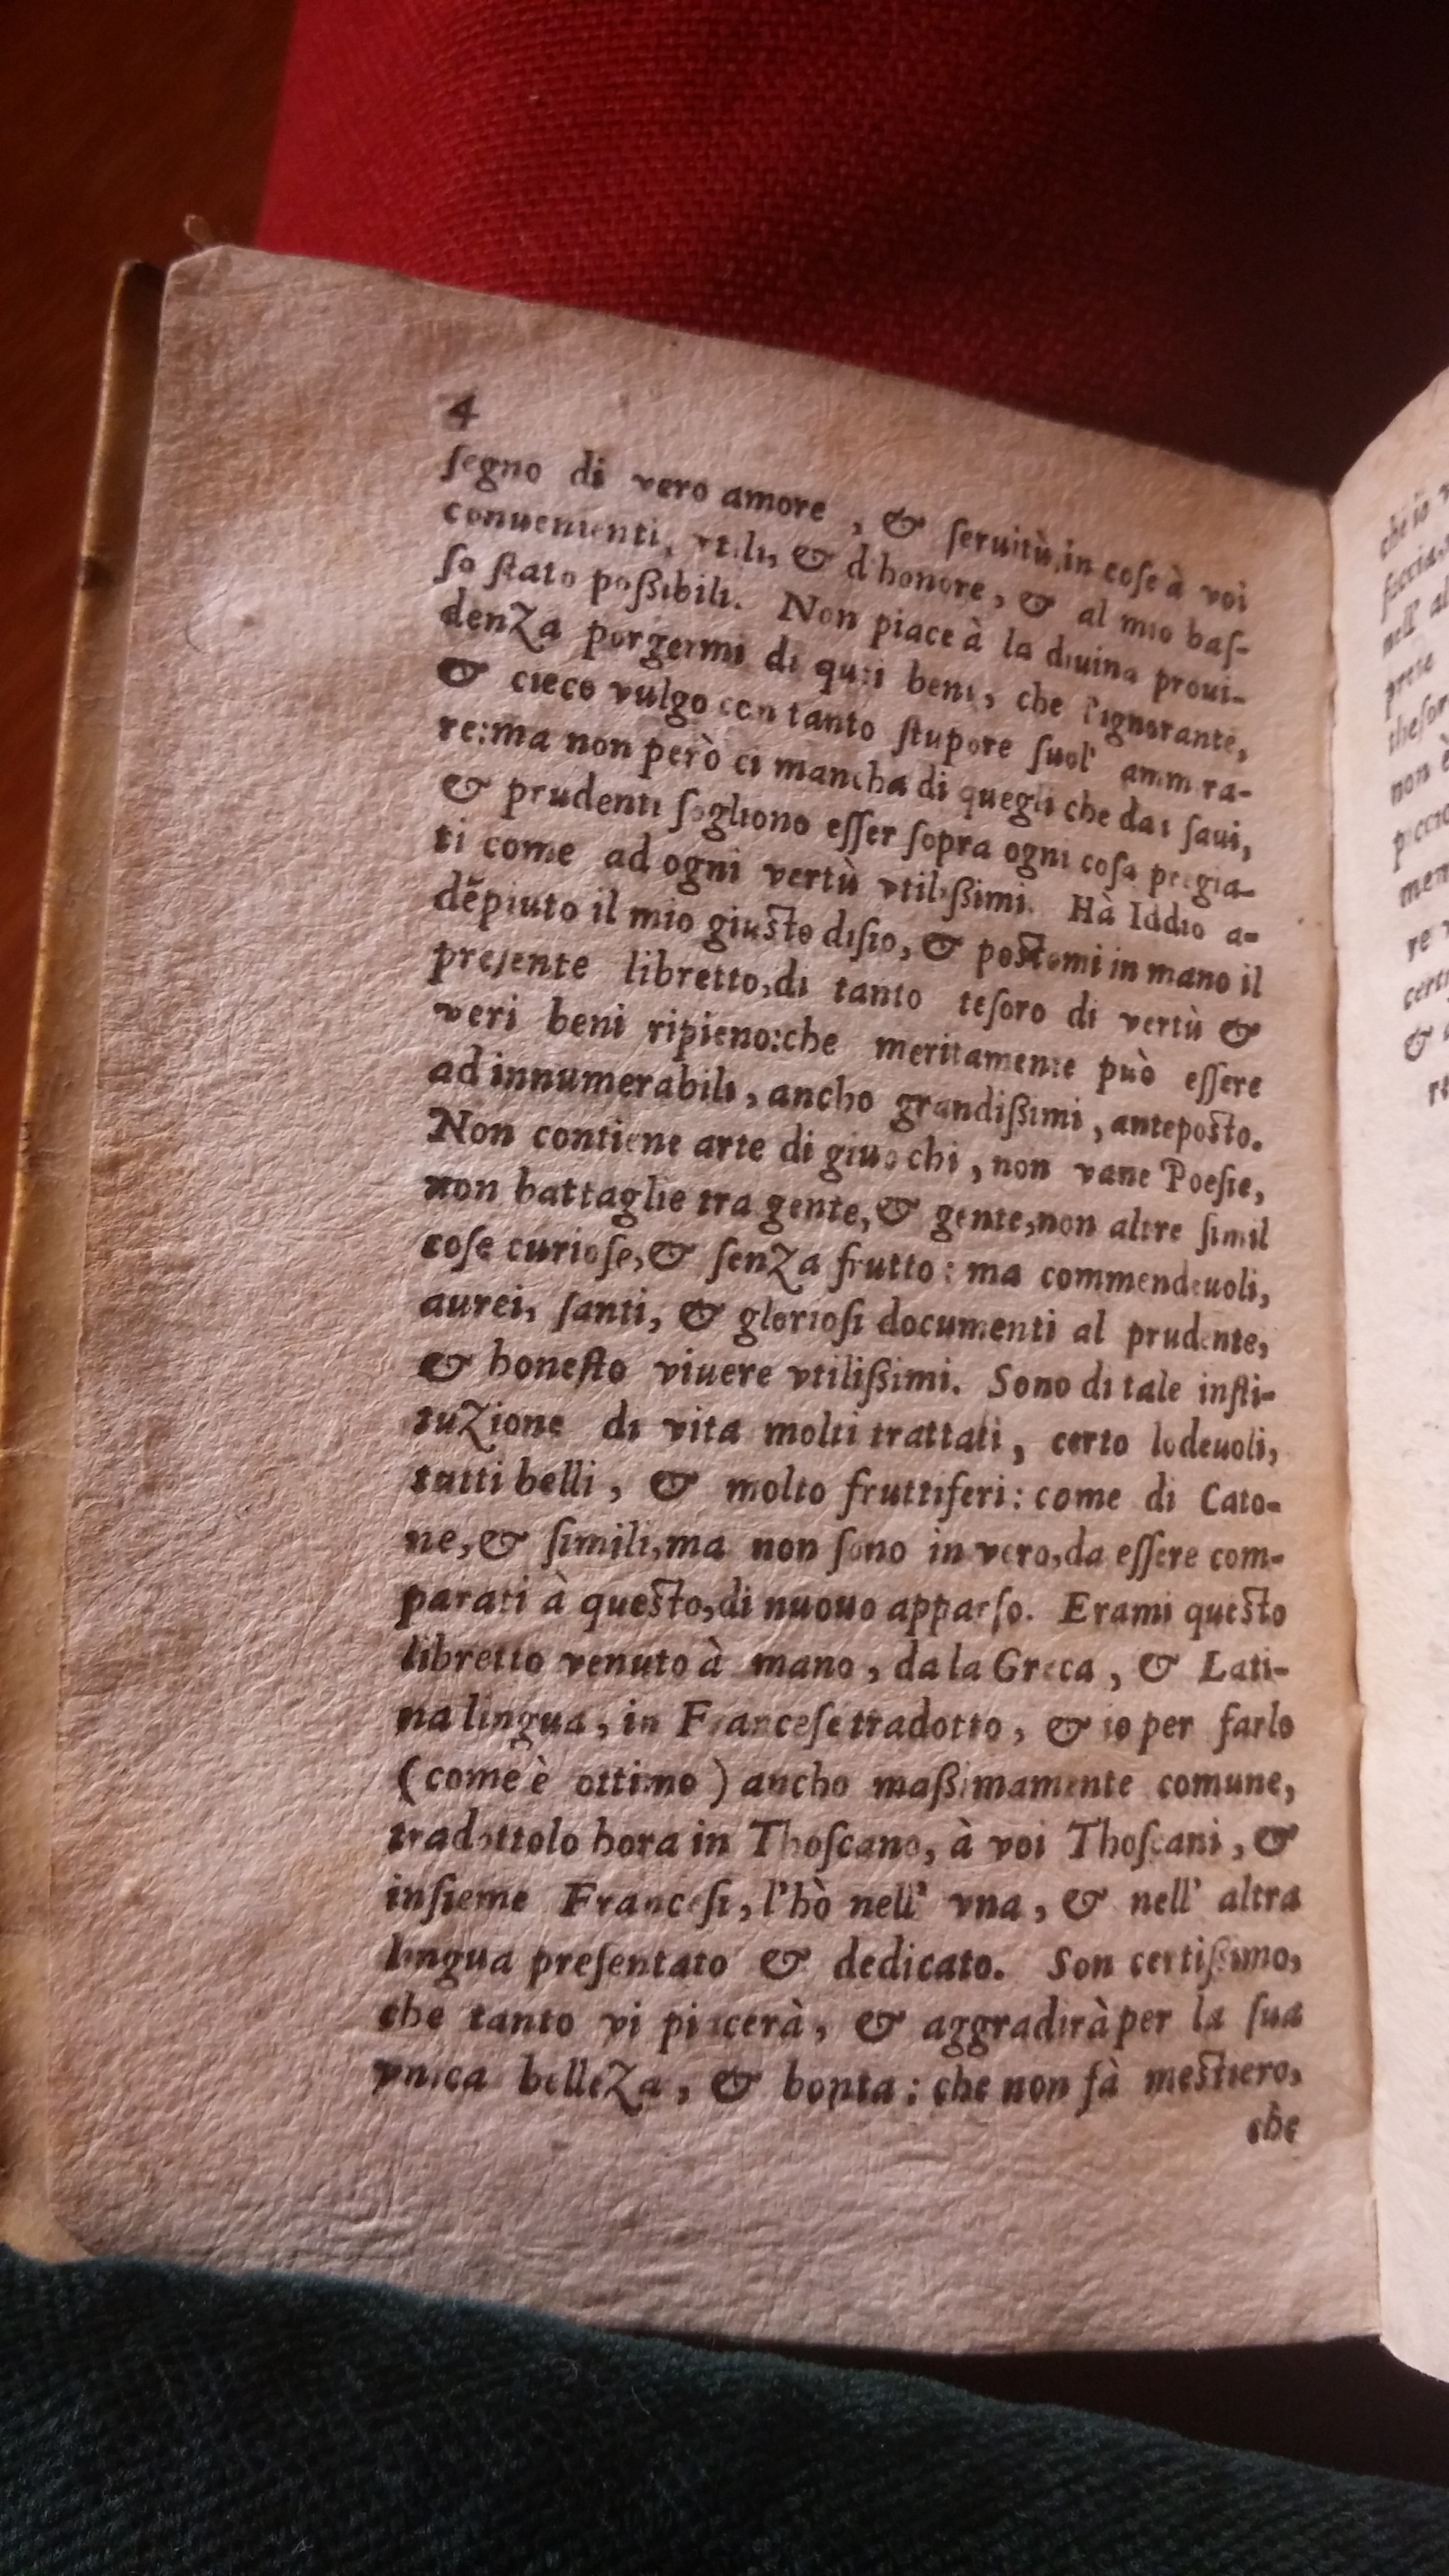 4
ſegno di vero amore, & ſeruitù, in coſe à voi
conuenienti, vtili, & d'honore, & al mio baſ-
ſo ſtato poßibili. Non piace à la diuina proui-
denza porgermi di quei beni, che l'ignorante,
& cieco vulgo con tanto ſtupore ſuol' ammira-
re: ma non però ci mancha di quegli che dai ſaui,
& prudenti ſogliono eſſer ſopra ogni coſa pregia-
ti come ad ogni vertù vtilißimi. Hà Iddio a-
dẽpiuto il mio giusto diſio, & postomi in mano il
preſente libretto, di tanto teſoro di vertù &
veri beni ripieno: che meritamente può eſſere
ad innumerabili, ancho grandißimi, anteposto.
Non contiene arte di giuochi, non vane Poeſie,
non battaglie tra gente, & gente, non altre ſimil
coſe curioſe, & ſenza frutto: ma commendeuoli,
aurei, ſanti, & glorioſi documenti al prudente,
& honeſto viuere vtilißimi. Sono di tale inſti-
tuzione di vita molti trattati, certo lodeuoli,
tutti belli, & molto fruttiferi: come di Cato-
ne, & ſimili, ma non ſono in vero, da eſſere com-
parati à questo, di nuouo apparſo. Erami questo
libretto venuto à mano, da la Greca, & Lati-
na lingua, in Franceſe tradotto, & io per farlo
(come è ottimo) ancho maßimamente comune,
tradottolo hora in Thoſcano, à voi Thoſcani, &
inſieme Franceſi, l'hò nell' vna, & nell' altra
lingua preſentato & dedicato. Son certißimo,
che tanto vi piacerà, & aggradirà per la ſua
vnica belleza, & bonta: che non fà mestiero,
che
che io
nell' al
prete
non è
re
&